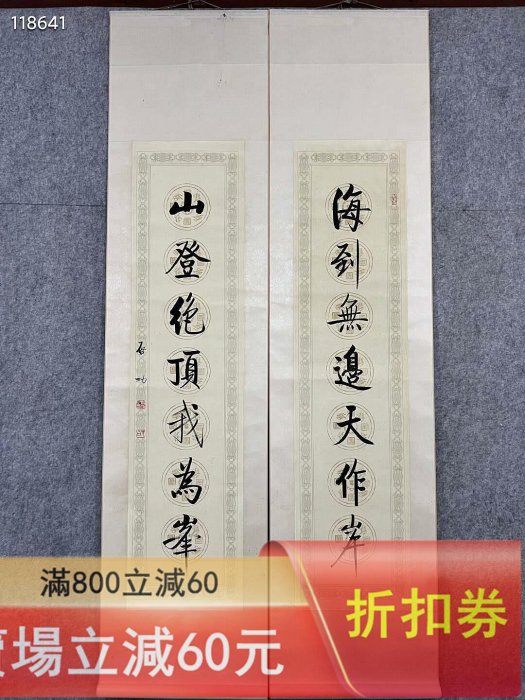 118641
海到無邊天作岸
山登絶頂我為峯
启功
滿800立減60
賣場立減60元
折扣券